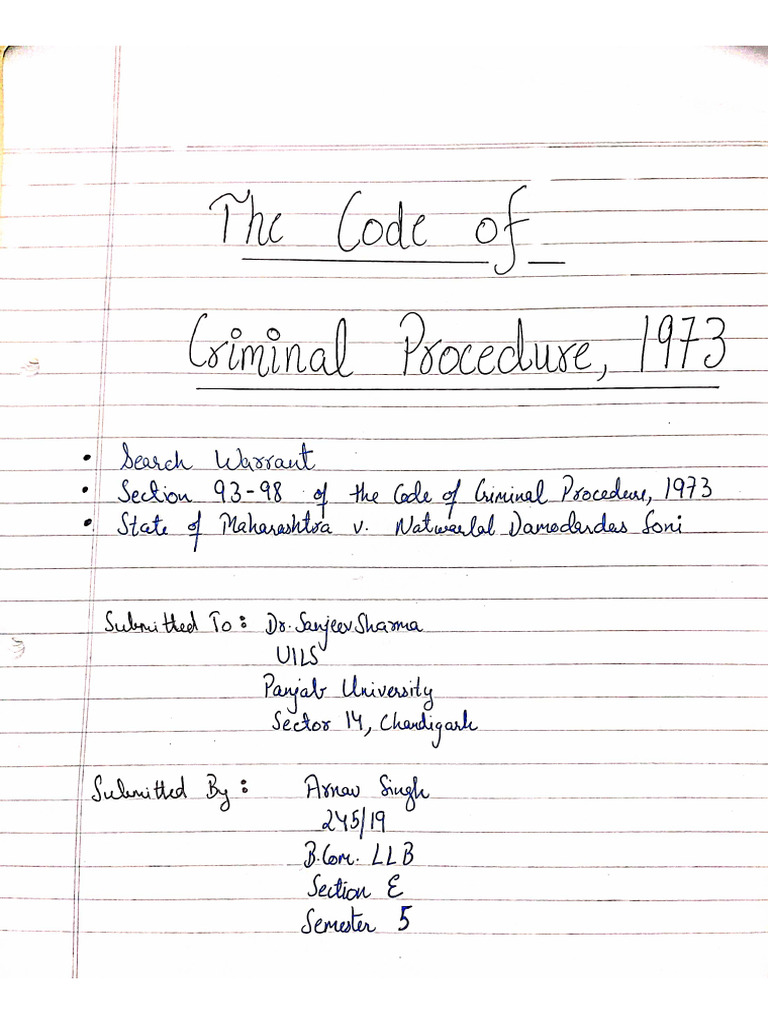 The Code of
Criminal Procedure, 1973
• Search Warrant
• Section 93-98 of the Code of Criminal Procedure, 1973
• State of Maharashtra v. Natwarlal Damodardas Soni
Submitted To: Dr. Sanjeev Sharma
UILS
Panjab University
Sector 14, Chandigarh
Submitted By: Arnav Singh
245/19
B.Com. LLB
Section E
Semester 5